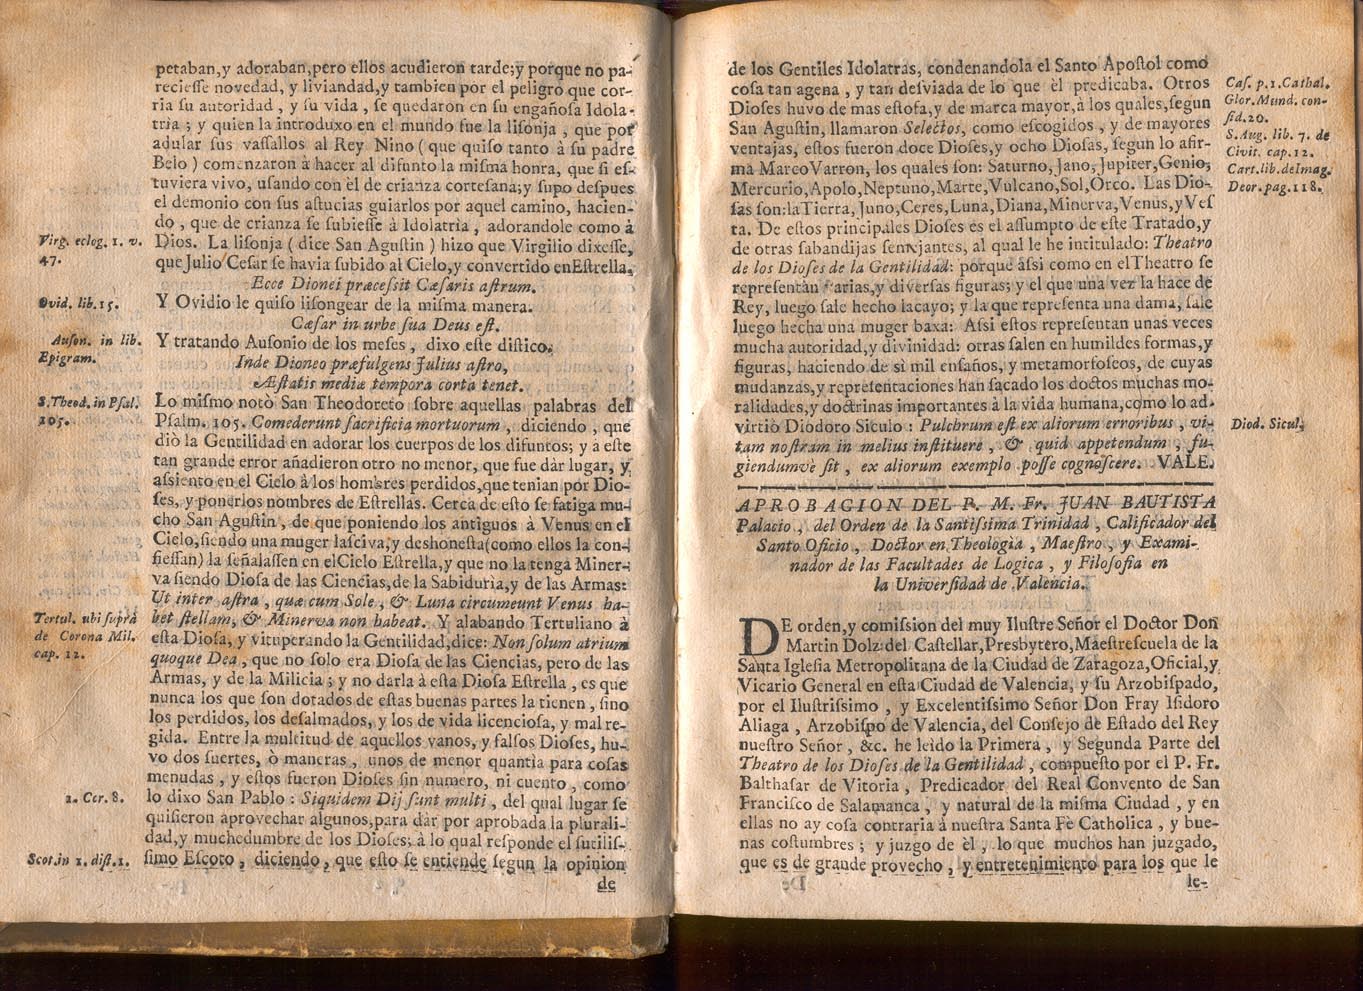 petaban,y adoraban,pero ellos acudieron tarde;y porque no pa-
reciesse novedad, y liviandad,y tambien por el peligro que cor-
ria su autoridad , y su vida , se quedaron en su engañosa Idola-
tria ; y quien la introduxo en el mundo fue la lisonja , que por
adular sus vassallos al Rey Nino ( que quiso tanto à su padre
Belo ) comenzaron à hacer al difunto la misma honra, que si es-
tuviera vivo, usando con èl de crianza cortesana;y supo despues
el demonio con sus astucias guiarlos por aquel camino, hacien-
do , que de crianza se subiesse à Idolatria , adorandole como à
Virg. eclog. 1. v. Dios. La lisonja ( dice San Agustin ) hizo que Virgilio dixesse,
47. que Julio Cesar se havia subido al Cielo,y convertido enEstrella.
Ecce Dionei præcessit Cæsaris astrum.
Ovid. lib.15. Y Ovidio le quiso lisongear de la misma manera.
Cæsar in urbe sua Deus est.
Auson. in lib. Y tratando Ausonio de los meses , dixo este distico.
Epigram. Inde Dioneo præfulgens Julius astro,
Æstatis mediæ tempora corta tenet.
S.Theod.in Psal. Lo mismo notò San Theodoreto sobre aquellas palabras del
105. Psalm. 105. Comederunt sacrificia mortuorum , diciendo , que
diò la Gentilidad en adorar los cuerpos de los difuntos; y a este
tan grande error añadieron otro no menor, que fue dàr lugar, y
assiento en el Cielo à los hombres perdidos,que tenian por Dio-
ses, y ponerlos nombres de Estrellas. Cerca de esto se fatiga mu-
cho San Agustin , de que poniendo los antiguos à Venus en el
Cielo,siendo una muger lasciva,y deshonesta(como ellos la con-
fiessan) la señalassen en elCielo Estrella,y que no la tenga Miner-
va siendo Diosa de las Ciencias,de la Sabiduria,y de las Armas:
Ut inter astra , quæ cum Sole , & Luna circumeunt Venus ha-
Tertul. ubi suprà bet stellam, & Minerva non habeat. Y alabando Tertuliano à
de Corona Mil. esta Diosa, y vituperando la Gentilidad,dice: Non solum atrium
cap. 12. quoque Dea , que no solo era Diosa de las Ciencias, pero de las
Armas, y de la Milicia ; y no darla à esta Diosa Estrella , es que
nunca los que son dotados de estas buenas partes la tienen , sino
los perdidos, los desalmados, y los de vida licenciosa, y mal re-
gida. Entre la multitud de aquellos vanos, y falsos Dioses, hu-
vo dos suertes, ò maneras , unos de menor quantìa para cosas
menudas , y estos fueron Dioses sin numero, ni cuento , como
1. Cor. 8. lo dixo San Pablo : Siquidem Dij sunt multi , del qual lugar se
quisieron aprovechar algunos,para dàr por aprobada la plurali-
dad,y muchedumbre de los Dioses; à lo qual responde el sutilis-
Scot.in 1. dist.1. simo Escoto , diciendo , que esto se entiende segun la opinion
de
de los Gentiles Idolatras, condenandola el Santo Apostol como
cosa tan agena , y tan desviada de lo que èl predicaba. Otros Cas. p.1.Cathal.
Dioses huvo de mas estofa,y de marca mayor,à los quales,segun Glor.Mund. con-
San Agustin, llamaron Selectos, como escogidos , y de mayores sid.20.
ventajas, estos fueron doce Dioses,y ocho Diosas, segun lo afir- S.Aug. lib. 7. de
ma Marco Varron, los quales son: Saturno,Jano,Jupiter,Genio, Civit. cap.12.
Mercurio,Apolo,Neptuno,Marte,Vulcano,Sol,Orco. Las Dio- Cart.lib.deImag.
sas son:laTierra, Juno,Ceres,Luna,Diana,Minerva,Venus,y Ves Deor.pag.118.
ta. De estos principales Dioses es el assumpto de este Tratado,y
de otras sabandijas semejantes, al qual le he intitulado: Theatro
de los Dioses de la Gentilidad: porque assi como en elTheatro se
representan varias,y diversas figuras; y el que una vez la hace de
Rey, luego sale hecho lacayo; y la que representa una dama, sale
luego hecha una muger baxa: Assi estos representan unas veces
mucha autoridad,y divinidad: otras salen en humildes formas,y
figuras, haciendo de sì mil ensaños, y metamorfoseos, de cuyas
mudanzas,y representaciones han sacado los doctos muchas mo-
ralidades,y doctrinas importantes à la vida humana,como lo ad-
virtiò Diodoro Siculo : Pulchrum est ex aliorum erroribus , vi- Diod. Sicul.
tam nostram in melius instituere , & quid appetendum , fu-
giendumve sit , ex aliorum exemplo posse cognoscere. VALE.
APROBACION DEL P. M. Fr. JUAN BAUTISTA
Palacio , del Orden de la Santissima Trinidad , Calificador del
Santo Oficio , Doctor en Theologia , Maestro , y Exami-
nador de las Facultades de Logica , y Filosofia en
la Universidad de Valencia.
DE orden,y comission del muy Ilustre Señor el Doctor Don
Martin Dolz del Castellar,Presbytero,Maestrescuela de la
Santa Iglesia Metropolitana de la Ciudad de Zaragoza,Oficial,y
Vicario General en esta Ciudad de Valencia, y su Arzobispado,
por el Ilustrissimo , y Excelentissimo Señor Don Fray Isidoro
Aliaga , Arzobispo de Valencia, del Consejo de Estado del Rey
nuestro Señor , &c. he leìdo la Primera , y Segunda Parte del
Theatro de los Dioses de la Gentilidad , compuesto por el P. Fr.
Balthasar de Vitoria , Predicador del Real Convento de San
Francisco de Salamanca , y natural de la misma Ciudad , y en
ellas no ay cosa contraria à nuestra Santa Fè Catholica , y bue-
nas costumbres ; y juzgo de èl , lo que muchos han juzgado,
que es de grande provecho , y entretenimiento para los que le
le-